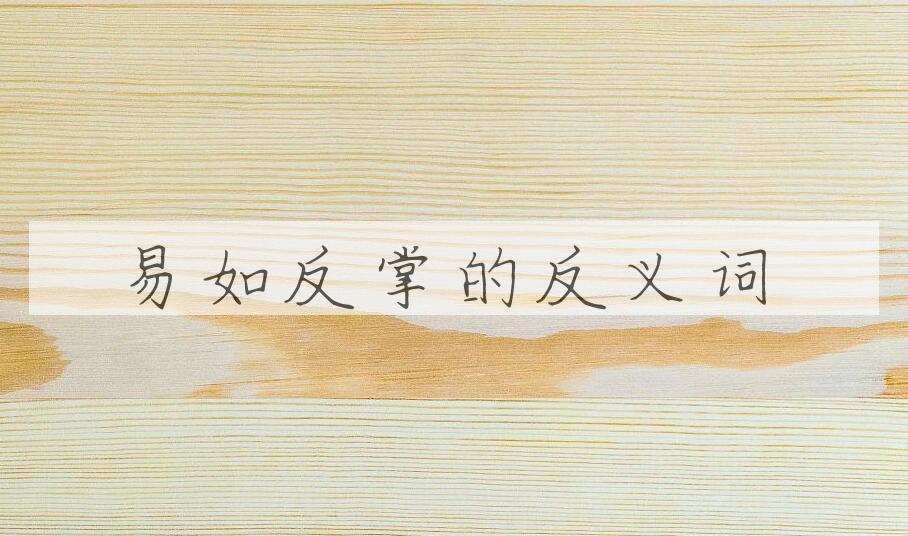 易如反掌的反义词